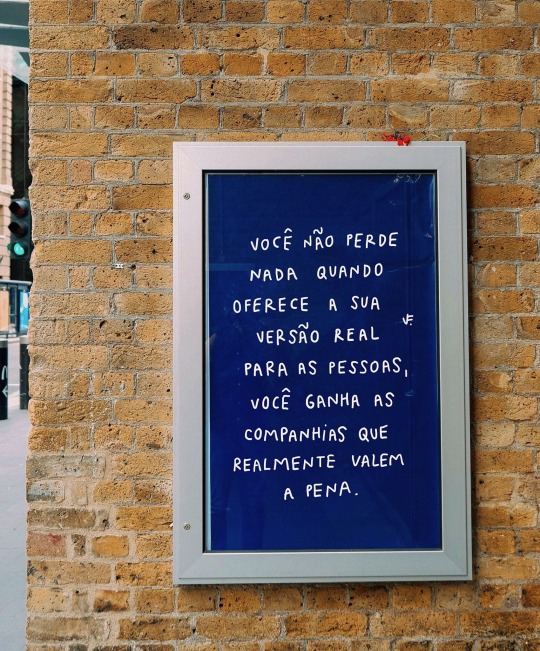 VOCÊ NÃO PERDE
NADA QUANDO
OFERECE A SUA
VERSÃO REAL
PARA AS PESSOAS,
VOCÊ GANHA AS
COMPANHIAS QUE
REALMENTE VALEM
A PENA.